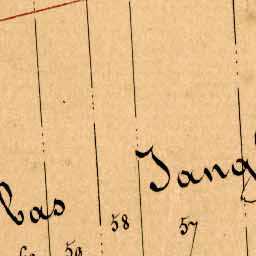 bas Jang
58 57
59